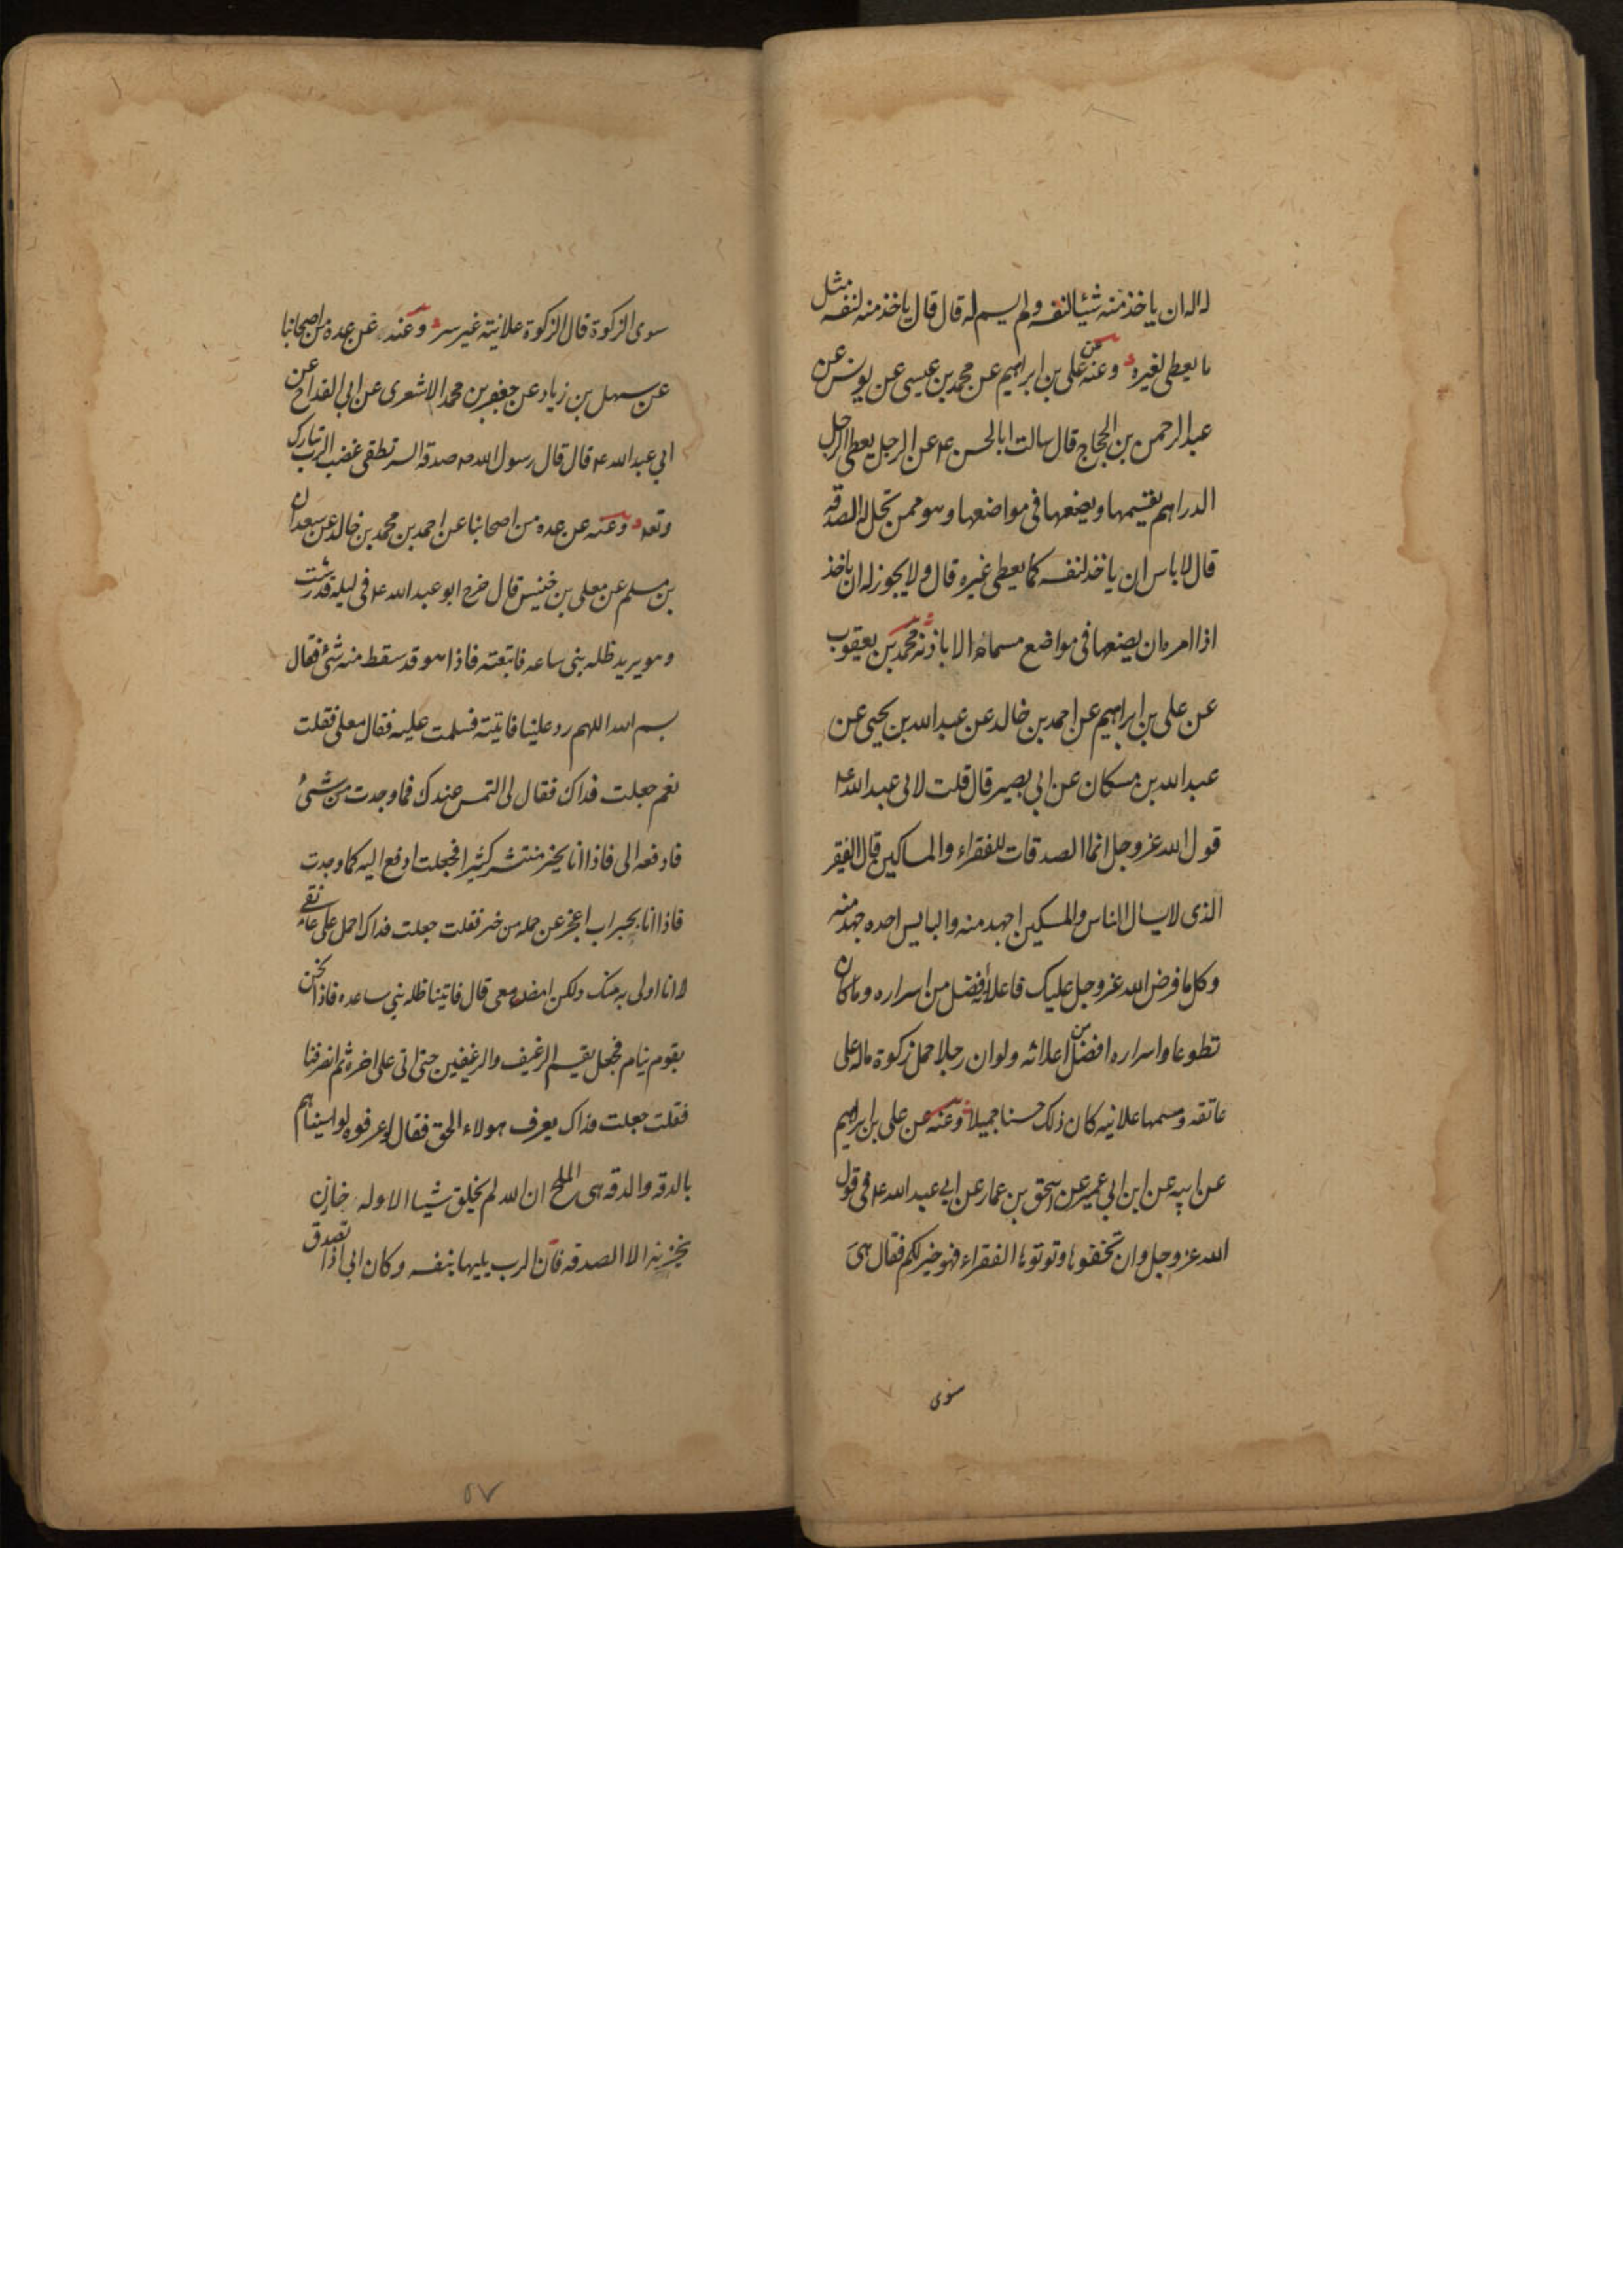 له اله ان ياخذ منه شيئا لنفسه ولم يسم له قال قال ياخذ منه لنفسه مثل
ما يعطى لغيره وعنه عن على بن ابراهيم عن محمد بن عيسى عن يونس عن
عبد الرحمن بن الحجاج قال سالت ابا الحسن ع عن الرجل يعطى الرجل
الدراهم يقسمها ويضعها فى مواضعها وهو ممن تحل له الصدقه
قال لا باس ان ياخذ لنفسه كما يعطى غيره قال ولا يجوز له ان ياخذ
اذا امره ان يضعها فى مواضع مسماة الا باذنه محمد بن يعقوب
عن على بن ابراهيم عن احمد بن خالد عن عبد الله بن يحيى عن
عبد الله بن مسكان عن ابى بصير قال قلت لابى عبد الله ع
قول الله عز وجل انما الصدقات للفقراء والمساكين قال الفقير
الذى لا يسال الناس والمسكين اجهد منه والبايس اجهدهم
وكل ما فرض الله عز وجل عليك فاعلانه افضل من اسراره وما كان
تطوعا واسراره افضل من اعلانه ولو ان رجلا حمل زكوة ماله على
عاتقه وسمها علانيه كان ذلك حسنا جميلا وعنه عن على بن ابراهيم
عن ابيه عن ابن ابى عمير عن اسحق بن عمار عن ابى عبد الله ع فى قول
الله عز وجل وان تخفوها وتوتوها الفقراء فهو خير لكم فقال هى
سوى
سوى الزكوة قال الزكوة علانية غير سر وعنه عن عده من اصحابنا
عن سهل بن زياد عن جعفر بن محمد الاشعرى عن ابى القداح عن
ابى عبد الله ع قال قال رسول الله ص صدقه السر تطفى غضب الرب تبارك
وتعه وعنه عن عده من اصحابنا عن احمد بن محمد بن خالد عن سعدان
بن مسلم عن معلى بن خنيس قال خرج ابو عبد الله ع فى ليلة قد رشت
وهو يريد ظله بنى ساعه فاتبعته فاذا هو قد سقط منه شئ فقال
بسم الله اللهم رد علينا فاتيته فسلمت عليه فقال معلى فقلت
نعم جعلت فداك فقال لى التمس عندك فما وجدت من شئ
فادفعه الى فاذا انا بخبز منتشر كثير فجعلت ادفع اليه كما وجدت
فاذا انا بجراب اعجز عن حمله من خبز فقلت جعلت فداك احمل على عاتقى
لا انا اولى به منك ولكن امض معى قال فاتينا ظله بنى ساعده فاذا نحن
بقوم نيام فجعل يقسم الرغيف والرغيفين حتى اتى على اخره ثم انصرفنا
فقلت جعلت فداك يعرف هولاء الحق فقال لو عرفوه لواسيناهم
بالدقه والدقه هى الملح ان الله لم يخلق شيا الا وله خازن
يخزنه الا الصدقه فان الرب يليها بنفسه وكان ابى اذا تصدق
٥٧